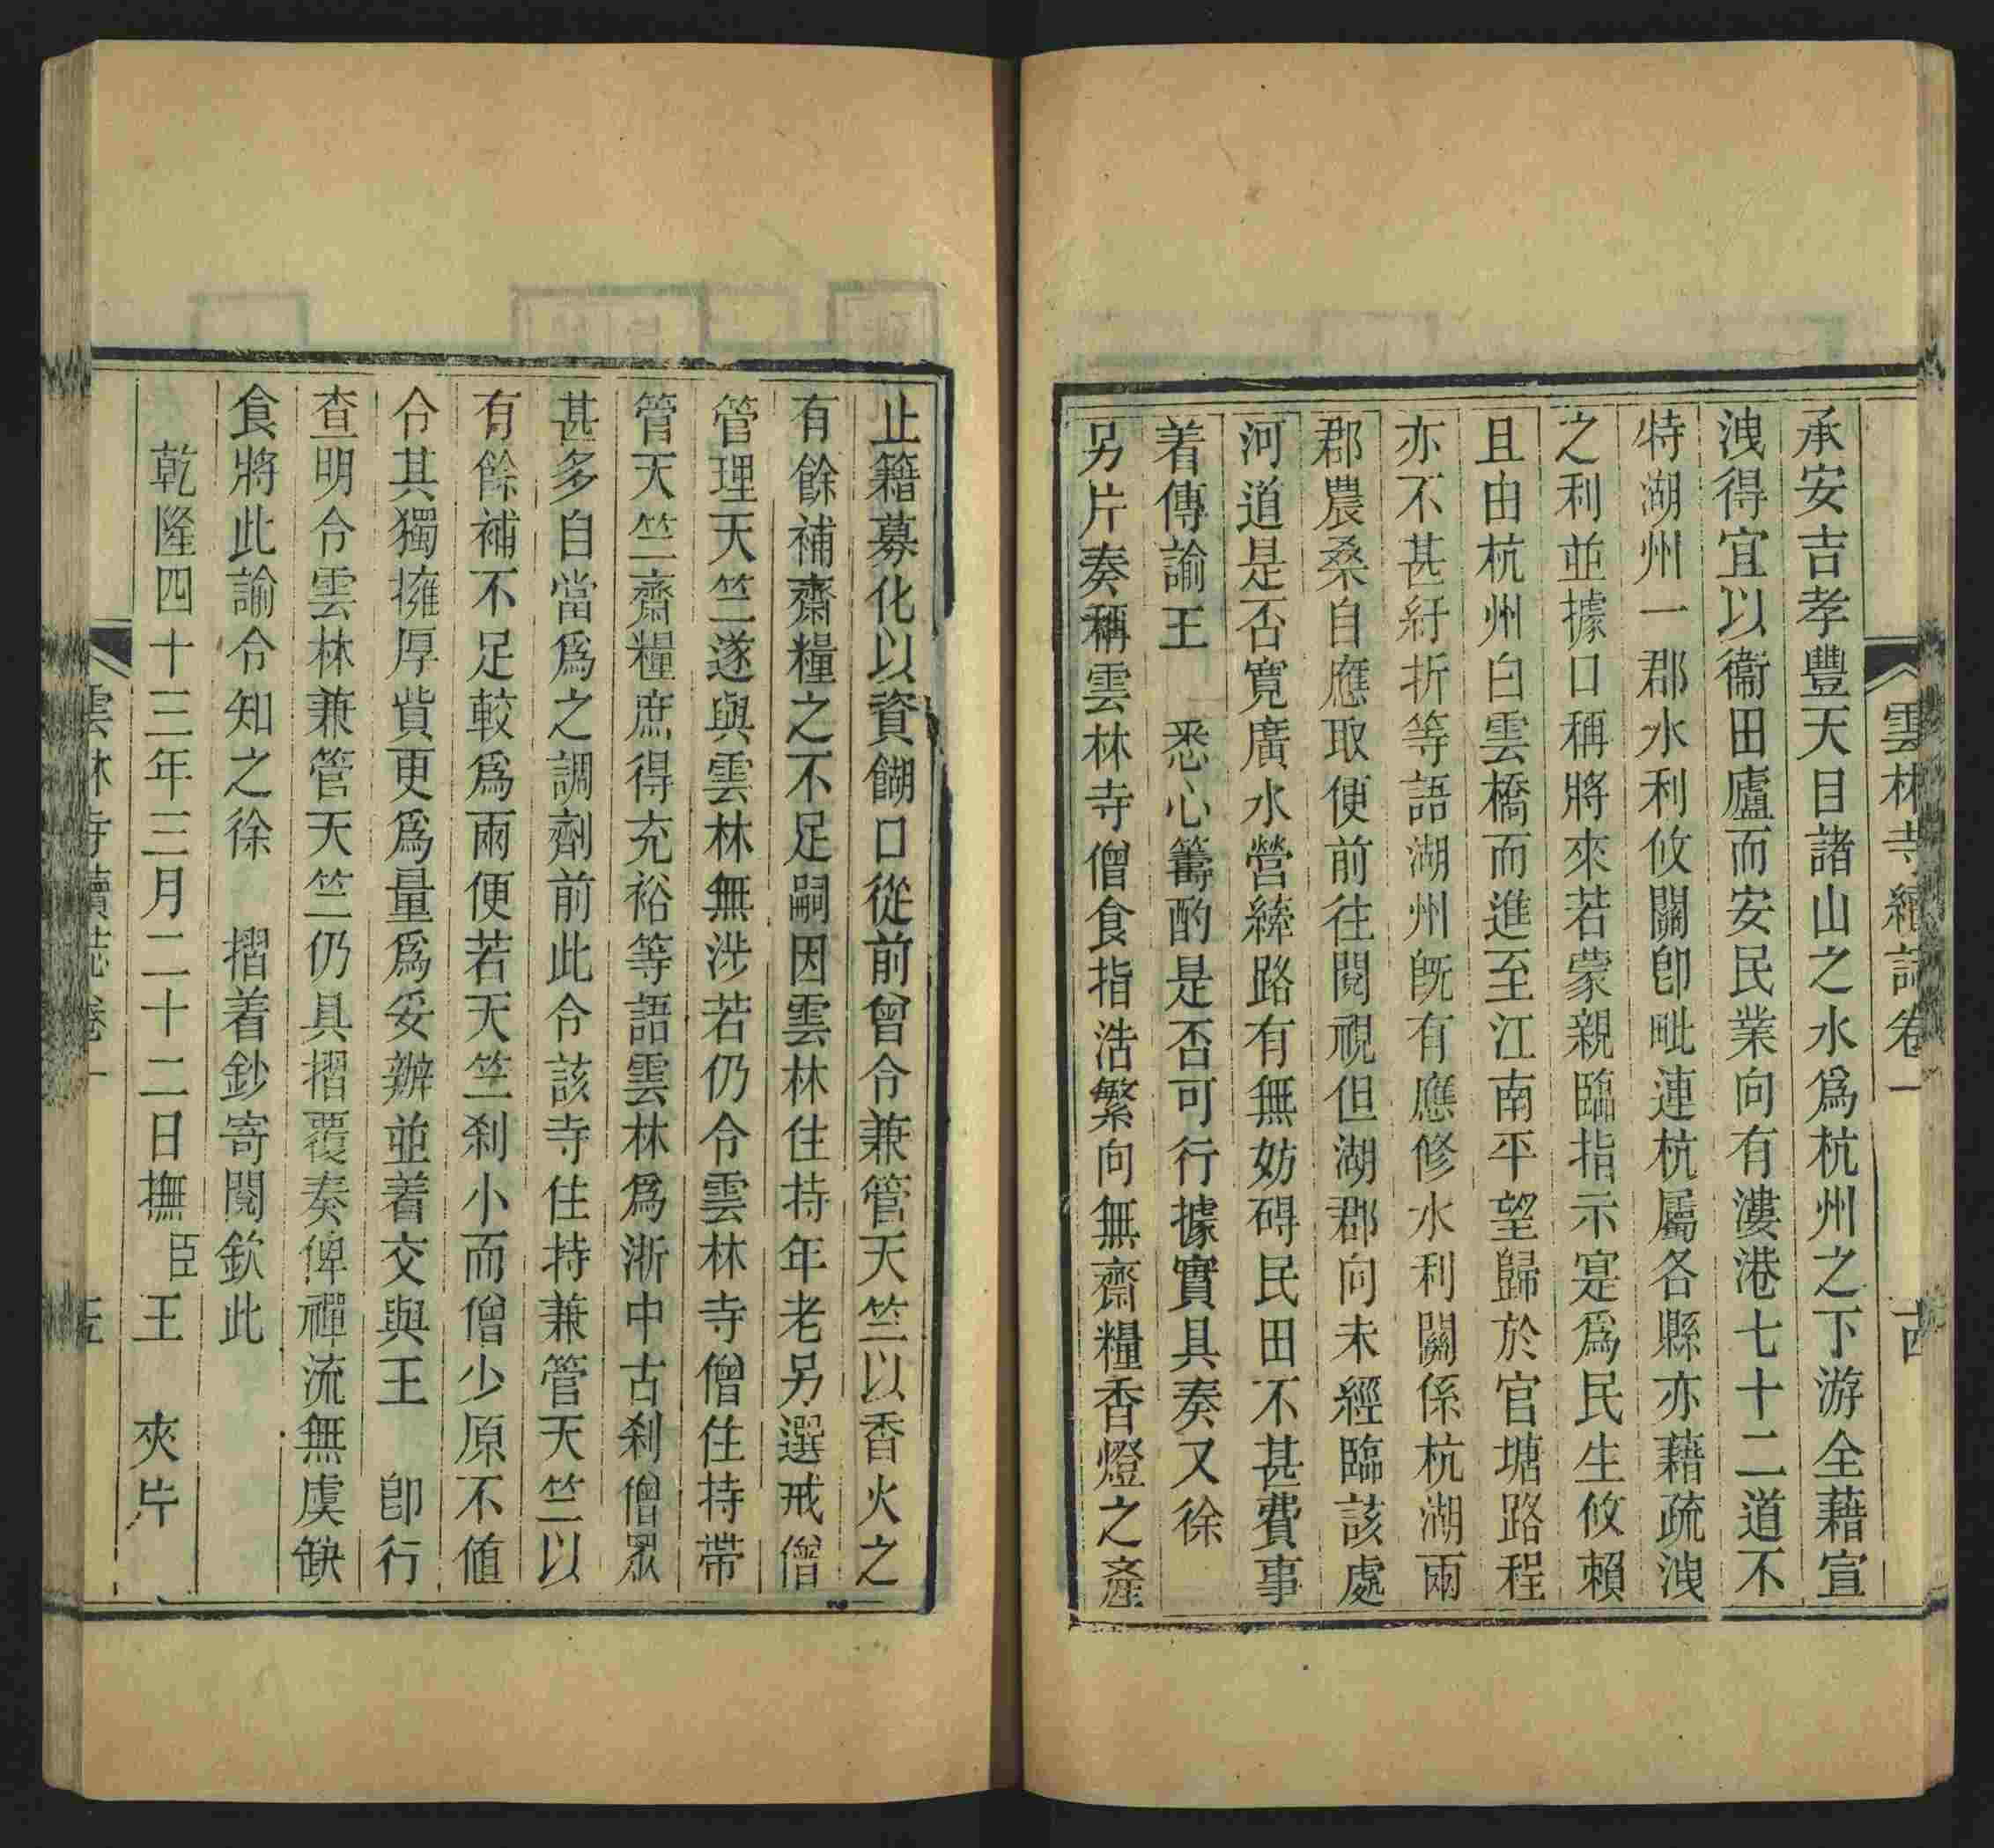 雲林寺續誌卷一 古
承安吉孝豐天目諸山之水爲杭州之下游全藉宣
洩得宜以衞田廬而安民業向有漊港七十二道不
特湖州一郡水利攸關卽毗連杭屬各縣亦藉疏洩
之利並據口稱將來若蒙親臨指示寔爲民生攸賴
且由杭州白雲橋而進至江南平望歸於官塘路程
亦不甚紆折等語湖州旣有應修水利關係杭湖兩
郡農桑自應取便前往閱視但湖郡向未經臨該處
河道是否寬廣水營縴路有無妨碍民田不甚費事
着傳諭王　悉心籌酌是否可行據實具奏又徐
另片奏稱雲林寺僧食指浩繁向無齋糧香燈之產
止籍募化以資餬口從前曾令兼管天竺以香火之
有餘補齋糧之不足嗣因雲林住持年老另選戒僧
管理天竺遂與雲林無涉若仍令雲林寺僧住持帶
管天竺齋糧庶得充裕等語雲林爲浙中古刹僧眾
甚多自當爲之調劑前此令該寺住持兼管天竺以
有餘補不足較爲兩便若天竺刹小而僧少原不値
令其獨擁厚貲更爲量爲妥辦並着交與王　卽行
查明令雲林兼管天竺仍具摺覆奏俾禪流無虞缺
食將此諭令知之徐　摺着鈔寄閱欽此
乾隆四十三年三月二十二日撫臣王　夾片
雲林寺續誌卷一